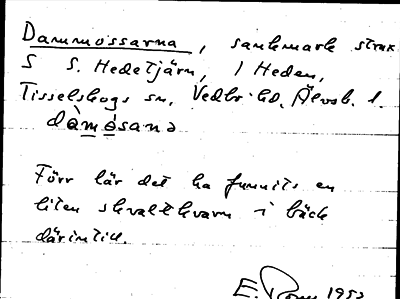 Dammossarna, sankmark strax
S S. Hedetjärn, i Heden,
Tisselskogs sn, Vedbo hd, Älvsb. l.
dàmósana
Förr lär det ha funnits en
liten skvaltkvarn i bäck
därintill.
E. 1952